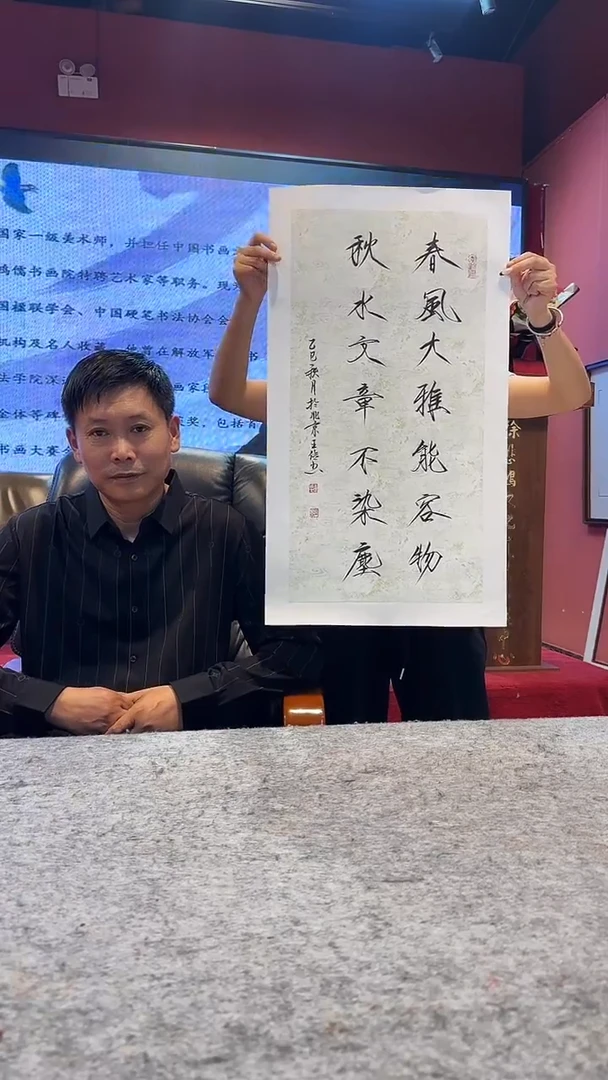 春風大雅能容物
秋水文章不染塵
乙巳秋月於北京王
国家一级美术师，并担任中国书画
鸿儒书画院特聘艺术家等职务。现
国楹联学会、中国硬笔书法协会会
机构及名人收藏。他曾在解放军
书
法学院深
画家
金体等碑
奖，包括首
书画大赛